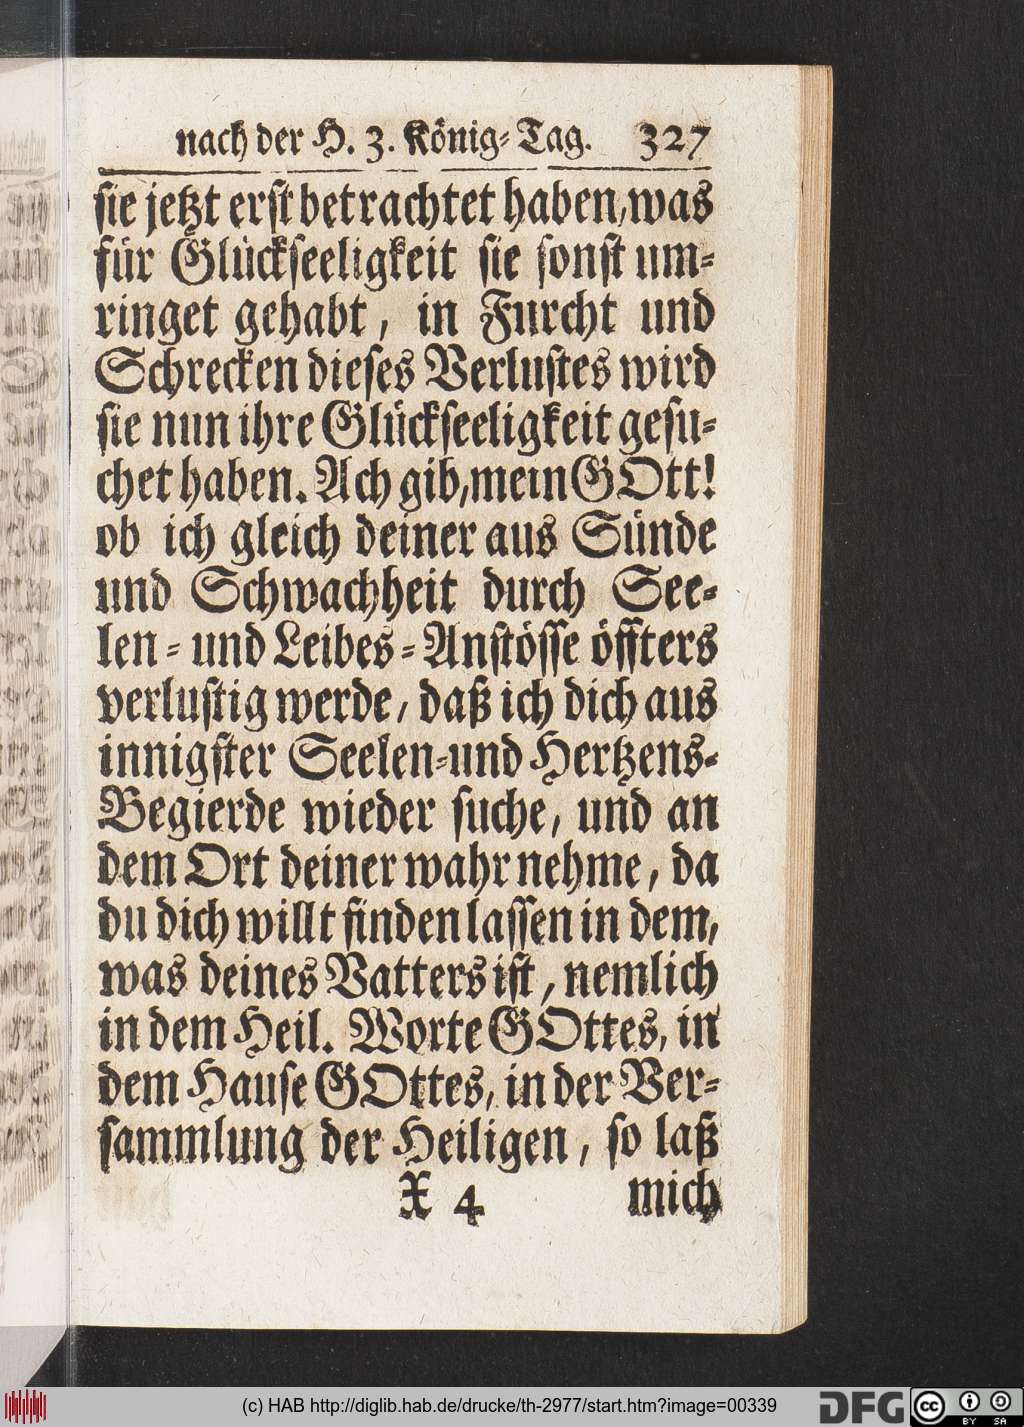 nach der H. 3. König-Tag. 327
sie jetzt erst betrachtet haben, was
für Glückseeligkeit sie sonst um-
ringet gehabt, in Furcht und
Schrecken dieses Verlustes wird
sie nun ihre Glückseeligkeit gesu-
chet haben. Ach gib, mein GOtt!
ob ich gleich deiner aus Sünde
und Schwachheit durch See-
len- und Leibes-Anstösse öffters
verlustig werde, daß ich dich aus
innigster Seelen- und Hertzens-
Begierde wieder suche, und an
dem Ort deiner wahr nehme, da
du dich willt finden lassen in dem,
was deines Vatters ist, nemlich
in dem Heil. Worte GOttes, in
dem Hause GOttes, in der Ver-
sammlung der Heiligen, so laß
X 4 mich
(c) HAB http://diglib.hab.de/drucke/th-2977/start.htm?image=00339
DFG
cc BY SA